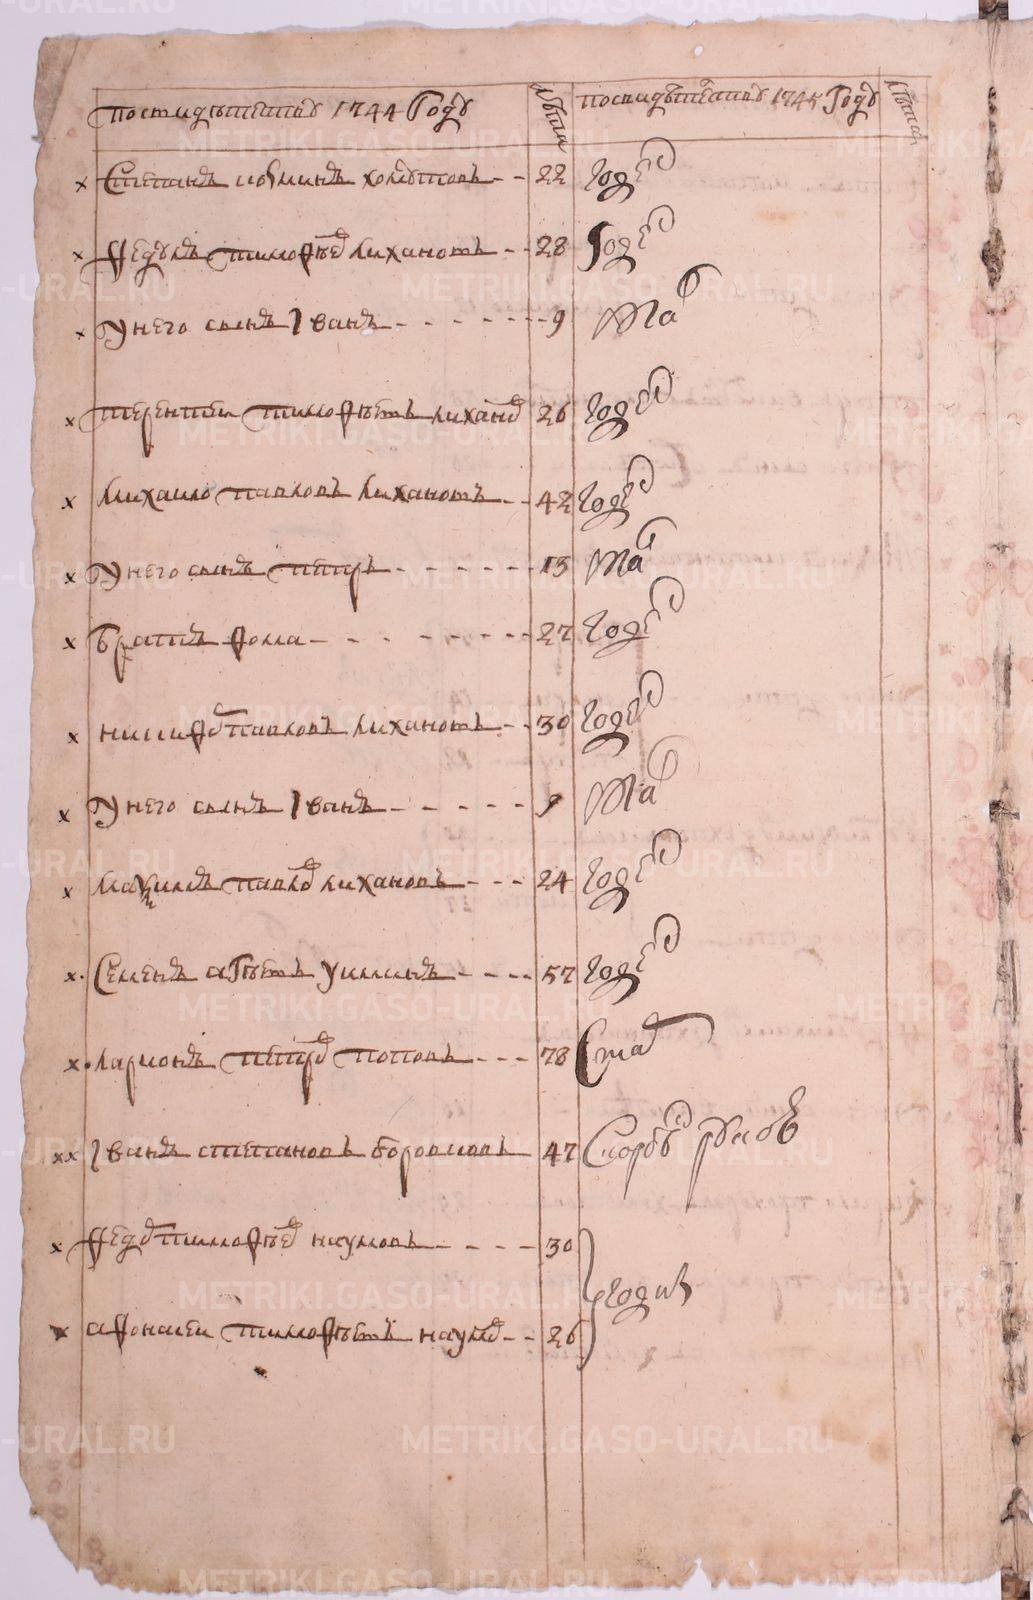 по свидетелству 1744 Году лѣта по свидѣтелству 1745 Году лѣта
х Степанъ козминъ холмотовъ -- 22 годе
х Федулъ тимофѣев лихановъ -- 28 годе
х У него сынъ Iванъ - - - - - - 9 мал
х терентеи тимофѣевъ лиханов 26 годе
х Михаило павловъ лихановъ -- 42 годе
х У него сынъ петръ - - - - - - 13 мал
х братъ фома - - - - - - 27 годе
х никифор павловъ лихановъ -- 30 годе
х У него сынъ Iванъ - - - - - 9 мал
х Максимъ павлов лихановъ --- 24 годе
х Семенъ авѣевъ уиминъ ---- 57 годе
х Ларионъ петров поповъ --- 78 стар
хх Iванъ степановъ боровковъ 47 скорбь рукою
х Фед тимофѣев наумовъ - - - - 30
годны
х афонасеи тимофѣевъ наумов -- 26
METRIKI.GASO-URAL.RU